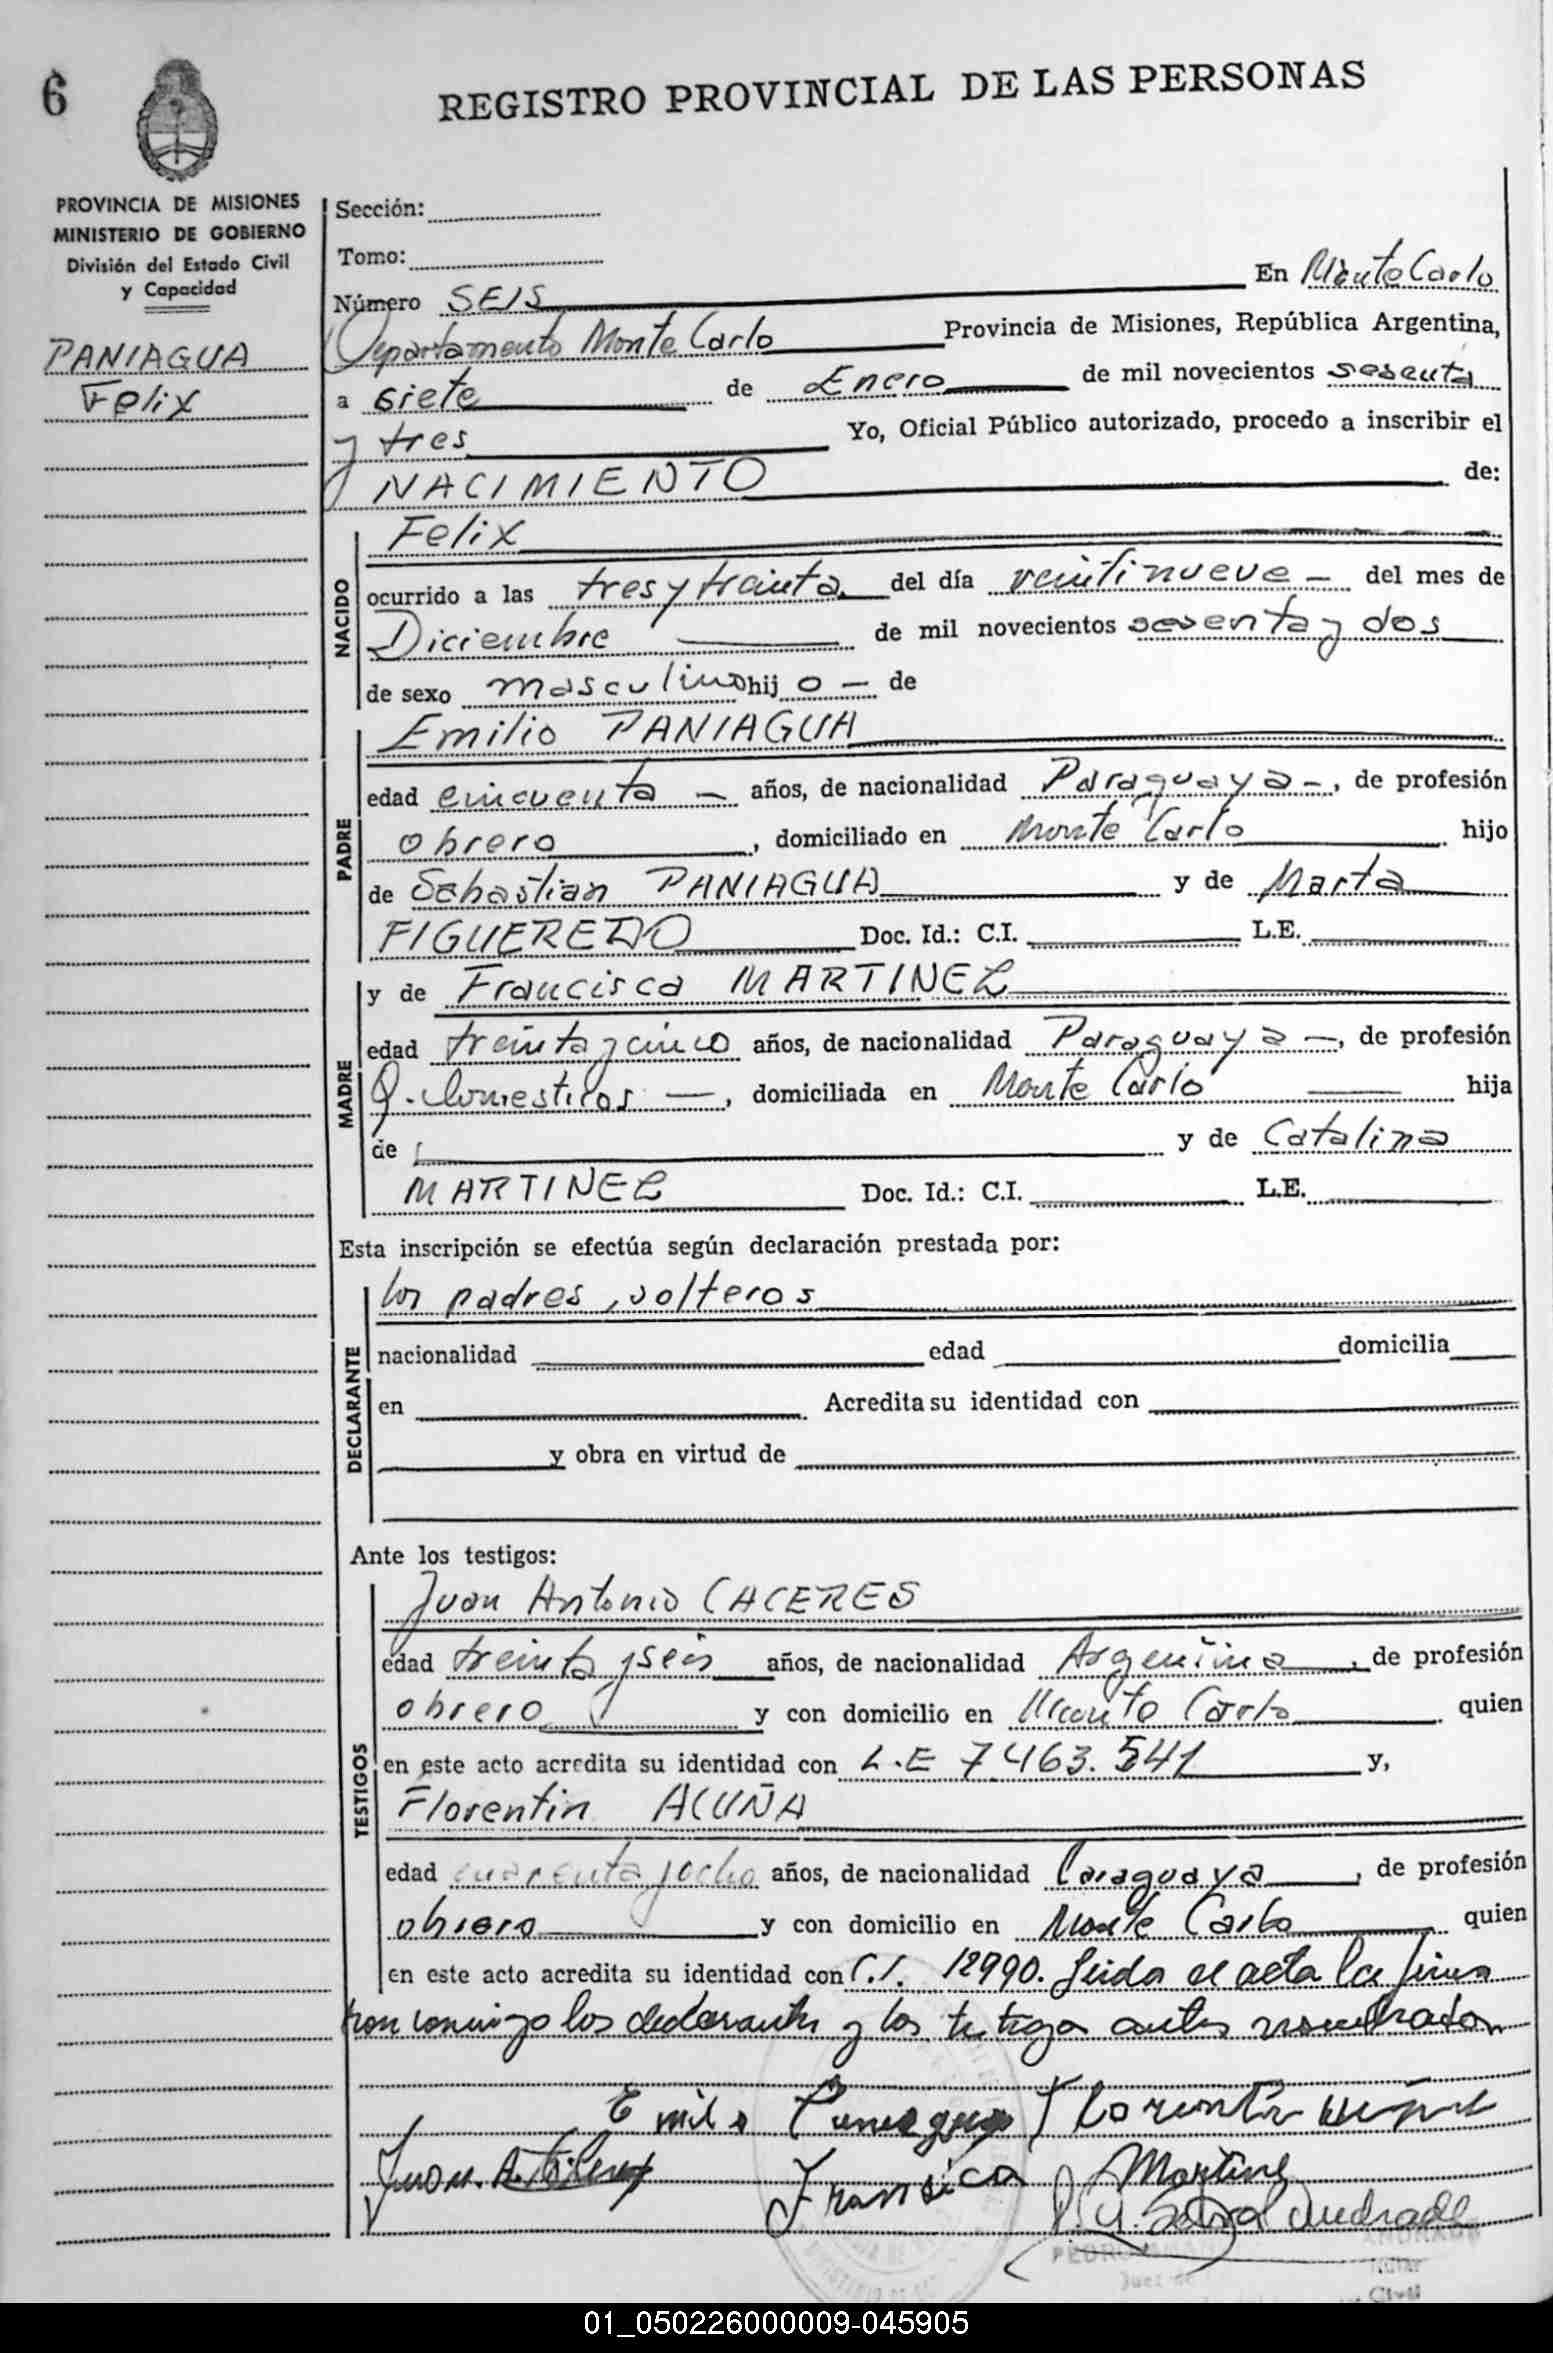 6
REGISTRO PROVINCIAL DE LAS PERSONAS
PROVINCIA DE MISIONES
MINISTERIO DE GOBIERNO
División del Estado Civil
y Capacidad
PANIAGUA
Felix
Sección:
Tomo:
Número SEIS En Monte Carlo
Departamento Monte Carlo Provincia de Misiones, República Argentina,
a siete de Enero de mil novecientos sesenta
y tres Yo, Oficial Público autorizado, procedo a inscribir el
NACIMIENTO de:
NACIDO
Felix
ocurrido a las tres y treinta del día veintinueve del mes de
Diciembre de mil novecientos sesenta y dos
de sexo masculino hij o de
PADRE
Emilio PANIAGUA
edad cincuenta años, de nacionalidad Paraguaya, de profesión
obrero, domiciliado en Monte Carlo hijo
de Sebastian PANIAGUA y de Marta
FIGUEREDO Doc. Id.: C.I. L.E.
MADRE
y de Francisca MARTINEZ
edad treinta y cinco años, de nacionalidad Paraguaya, de profesión
Q. domesticos, domiciliada en Monte Carlo hija
de y de Catalina
MARTINEZ Doc. Id.: C.I. L.E.
Esta inscripción se efectúa según declaración prestada por:
DECLARANTE
los padres, solteros
nacionalidad edad domicilia
en Acredita su identidad con
y obra en virtud de
Ante los testigos:
TESTIGOS
Juan Antonio CACERES
edad treinta y seis años, de nacionalidad Argentina, de profesión
obrero y con domicilio en Monte Carlo quien
en este acto acredita su identidad con L.E 7463.541 y,
Florentin ACUÑA
edad cuarenta y ocho años, de nacionalidad Paraguaya, de profesión
obrero y con domicilio en Monte Carlo quien
en este acto acredita su identidad con C.I. 12990. Leida el acta la firma
ron conmigo los declarantes y los testigos antes nombrados
Emilio Paniagua Florentin
Juan A.
Fransica Martine
Andrade
PEDRO ANDRADE
Juez de
Titular
Civil
01_050226000009-045905